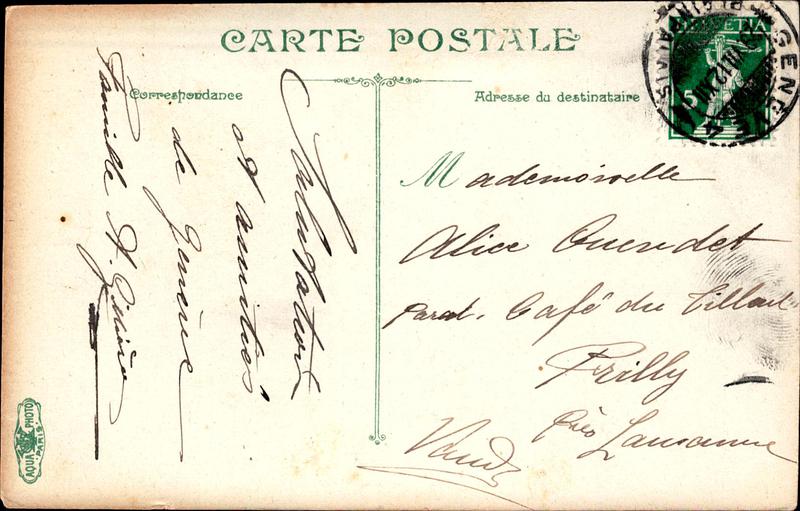 CARTE POSTALE
Correspondance
Adresse du destinataire
HELVETIA
5
GENÈVE
Salutations
et amitiés
de Genève
Famille A.
Mademoiselle
Alice Cuendet
Café du Tilleul
Prilly
près Lausanne
Vaud
AQUA PHOTO
PARIS